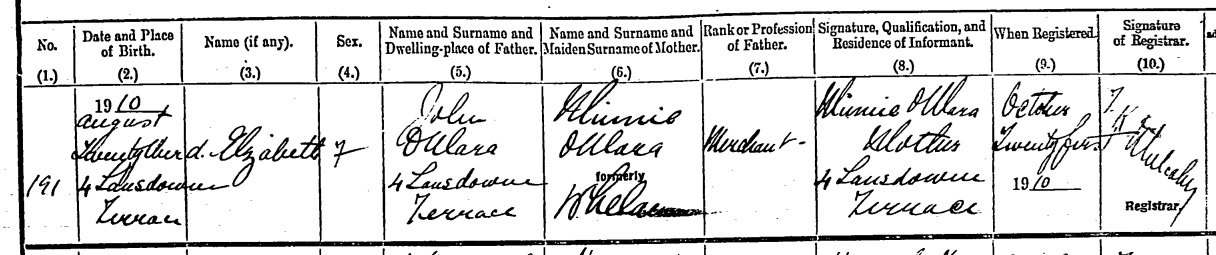 No.
Date and Place
of Birth.
(1.)
(2.)
Name (if any).
(3.)
Sex.
(4.)
Name and Surname and
Dwelling-place of Father.
(5.)
Name and Surname and
Maiden Surname of Mother.
(6.)
Rank or Profession
of Father.
(7.)
Signature, Qualification, and
Residence of Informant.
(8.)
When Registered.
(9.)
Signature
of Registrar.
(10.)
191
1910
August
Twenty third.
4 Lansdowne
Terrace
Elizabeth
F
John
O'Mara
4 Lansdowne
Terrace
Minnie
O'Mara
formerly
Whelan
Merchant
Minnie O'Mara
Mother
4 Lansdowne
Terrace
October
Twenty first
1910
Mulcahy
Registrar.